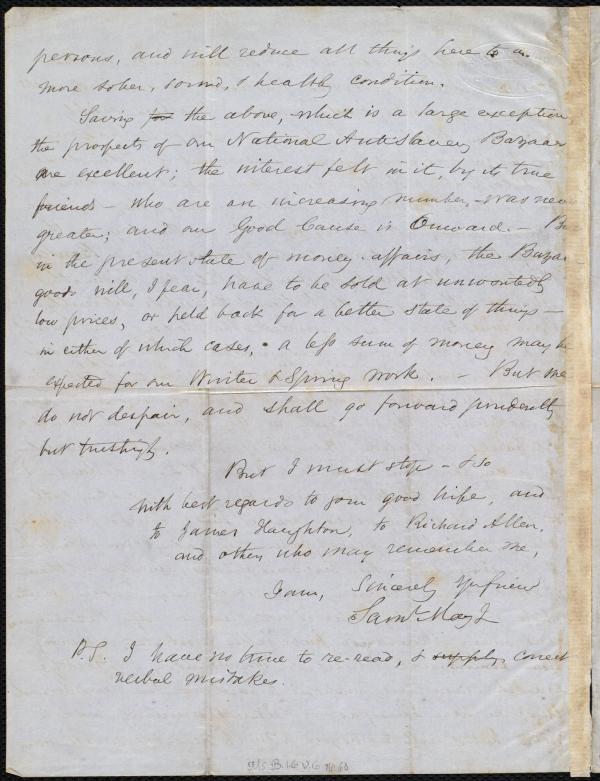 persons, and will reduce all things here to a
more sober, sound, & healthy condition.
Saving for the above, which is a large exception
the prospects of our National Anti Slavery Bazaar
are excellent; the interest felt in it, by its true
friends – who are an increasing number, – was never
greater; and our Good Cause is Onward. – But
in the present state of money-affairs, the Bazaar
goods will, I fear, have to be sold at unwontedly
low prices, or held back for a better state of things –
in either of which cases, a less sum of money may be
expected for our Winter & Spring work. – But we
do not despair, and shall go forward prudently
but trustingly.
But I must stop – & so
with best regards to your good wife, and
to James Haughton, to Richard Allen,
and others who may remember me,
I am, Sincerely Yr friend
Saml. May Jr
P.S. I have no time to re-read, & supply correct
verbal mistakes.
Ms. B.1.6 V.6 No. 60